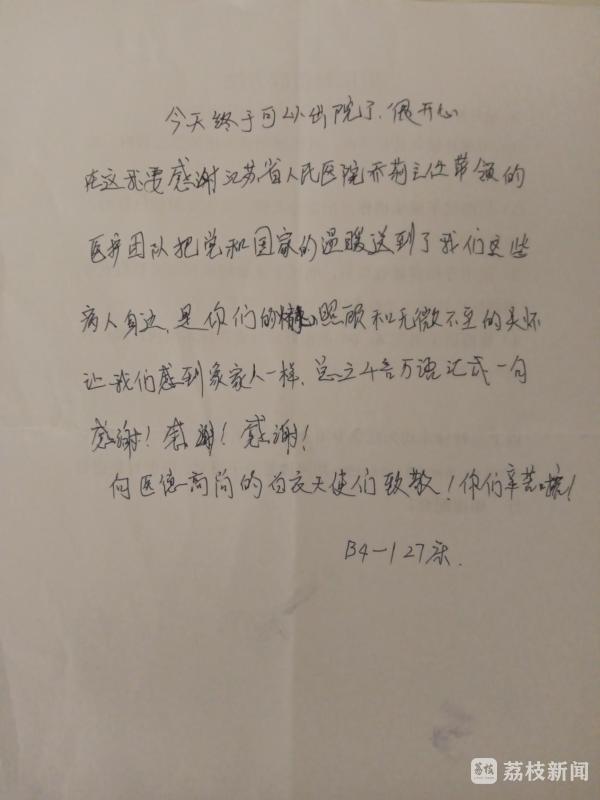 今天终于可以出院了、很开心
在这我要感谢江苏省人民医院乔莉主任带领的
医护团队把党和国家的温暖送到了我们这些
病人身边、是你们的精心照顾和无微不至的关怀
让我们感到象家人一样、总之千言万语汇成一句
感谢！感谢！感谢！
向医德高尚的白衣天使们致敬！你们辛苦啦！
B4-127床.
荔枝 荔枝新闻